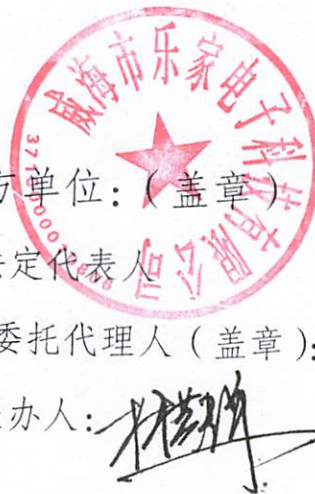 威海市乐家电子科技有限公司
方单位:(盖章)
法定代表人
委托代理人(盖章):
办人: